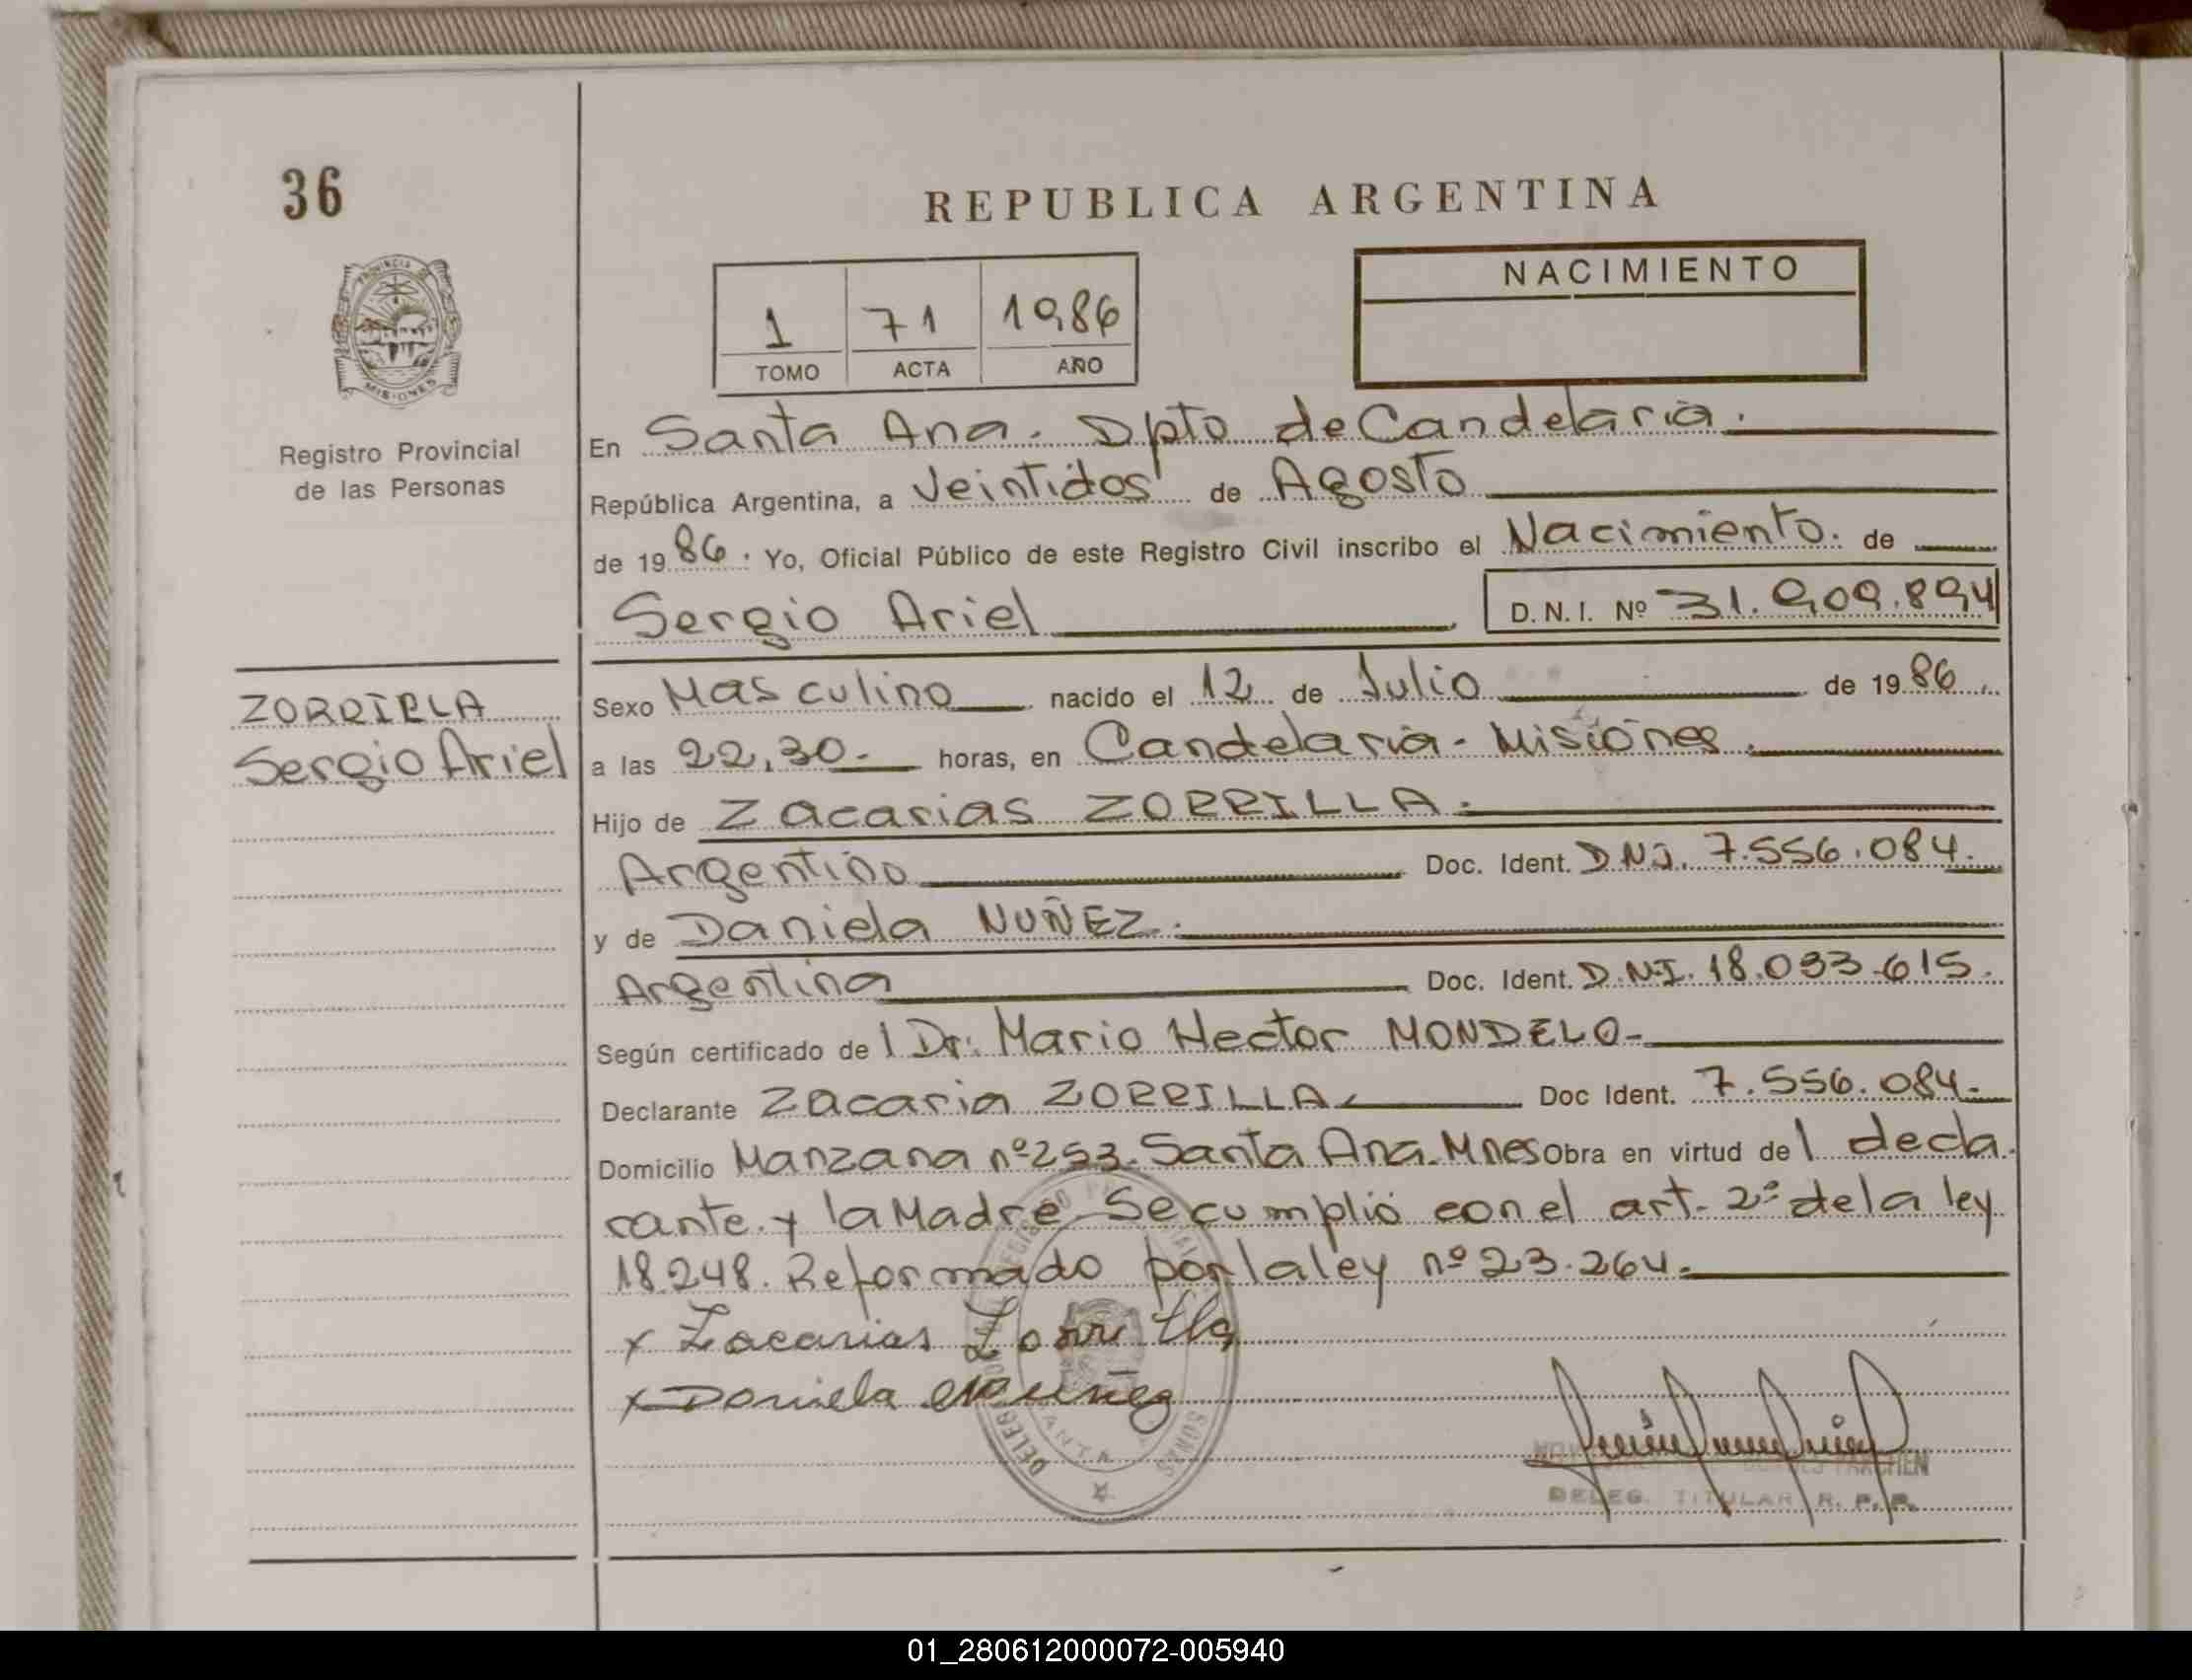 36
REPUBLICA ARGENTINA
PROVINCIA DE
MISIONES
Registro Provincial
de las Personas
1 71 1986
TOMO ACTA AÑO
NACIMIENTO
En Santa Ana. Dpto de Candelaria.
República Argentina, a Veintidos de Agosto
de 1986. Yo, Oficial Público de este Registro Civil inscribo el Nacimiento. de
Sergio Ariel D.N.I. Nº 31.909.894
ZORRILLA
Sergio Ariel
Sexo Masculino nacido el 12 de Julio de 1986.
a las 22,30.- horas, en Candelaria - Misiones.
Hijo de Zacarias ZORRILLA.
Argentino Doc. Ident. DNI. 7.556.084.
y de Daniela NUÑEZ.
Argentina Doc. Ident. D.N.I. 18.093.615.
Según certificado de l Dr: Mario Hector MONDELO-
Declarante Zacaria ZORRILLA Doc Ident. 7.556.084.
Domicilio Manzana nº253. Santa Ana. Mnes Obra en virtud de l decla
rante y la Madre Se cumplió con el art. 2º de la ley
18.248. Reformado por la ley nº 23.264.
x Zacarias Zorrilla
x Daniela Nuñez
DELEG. TITULAR R. P. P.
01_280612000072-005940